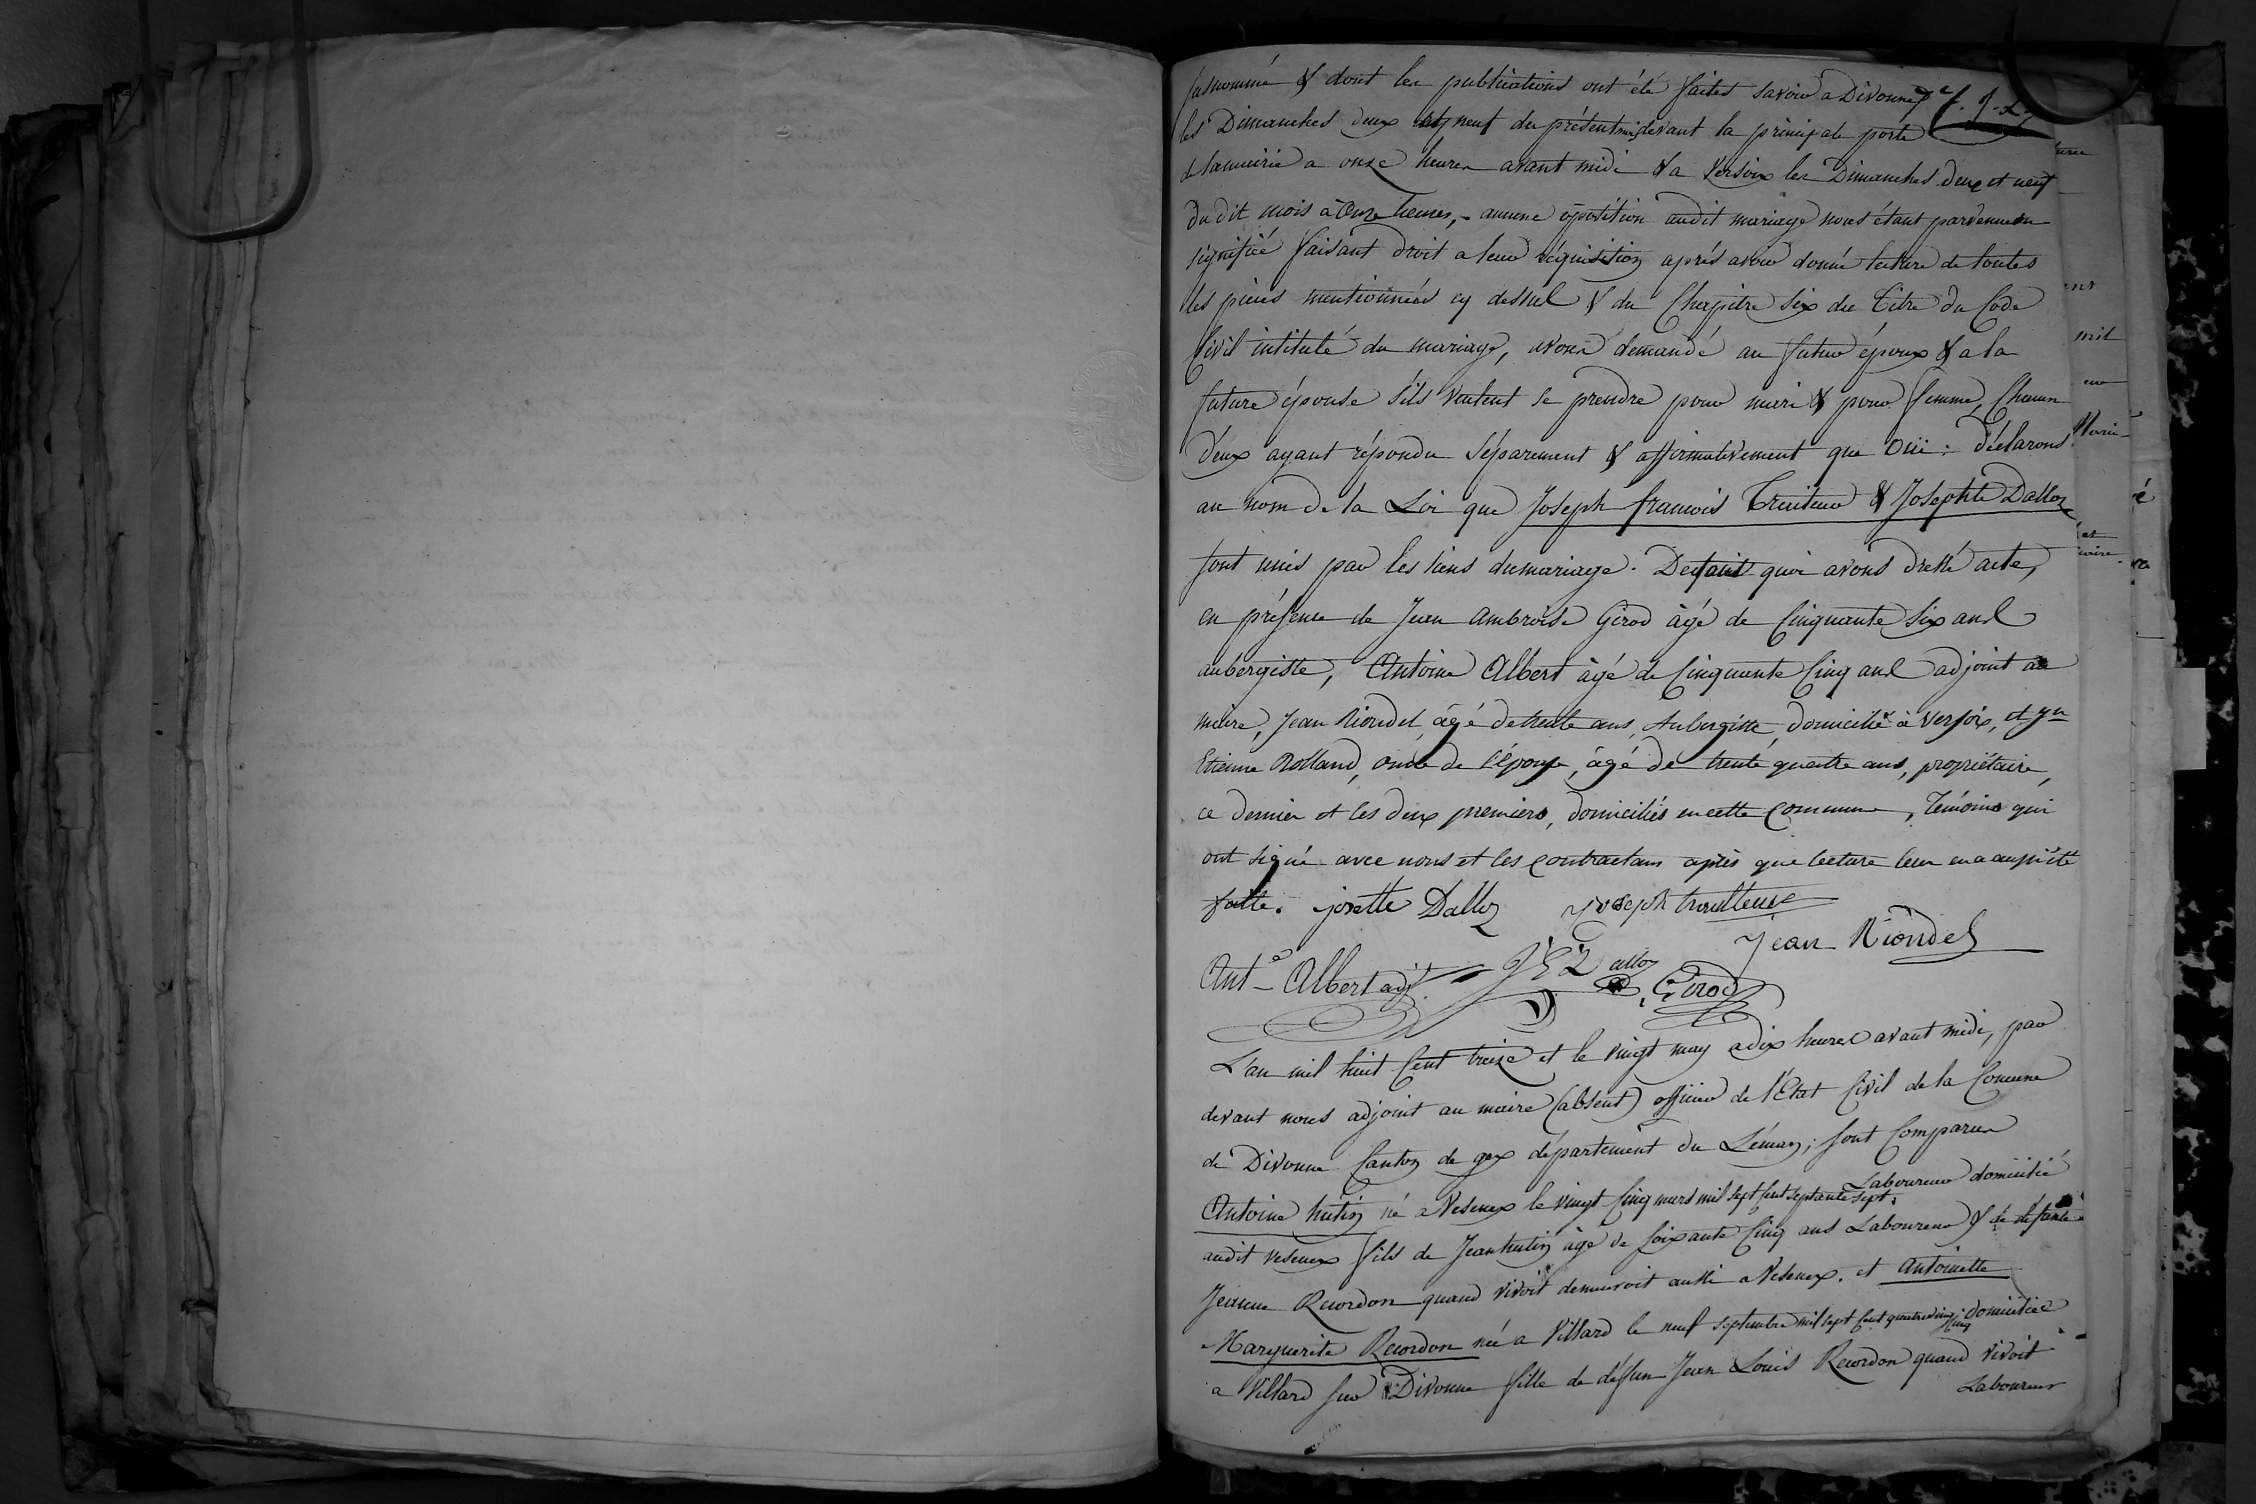 susnommé & dont les publications ont été faites savoir a Divonne
les Dimanches deux et neuf du présent mois devant la principale porte
de la mairie a onze heures avant midi & a Versoix les Dimanches deux et neuf
du dit mois à onze heures, aucune opposition audit mariage nous étant parvenue ou
signifiée faisant droit a leur réquisition aprés avoir donné lecture de toutes
les pieces mentionnées cy dessus & du Chapitre six du Titre du Code
Civil intitulé du mariage, avons demandé au futur époux & a la
future épouse s'ils veulent se prendre pour mari & pour femme, Chacun
d'eux ayant répondu séparement & affirmativement que Oüi : déclarons
au nom de la Loi que Joseph francois Treuteur & Josephte Dalloz
sont unis par les liens du mariage. De tout quoi avons dressé acte,
en présence de Jean ambroise Girod âgé de Cinquante Six ans
aubergiste, Antoine Albert âgé de Cinquante Cinq ans adjoint au
maire, Jean Riondel, âgé de trente ans, Aubergiste, domicilié à Versoix, et
Etienne Rolland, oncle de l'épouse, âgé de trente quatre ans, propriétaire,
ce dernier et les deux premiers, domiciliés en cette Commune, Témoins qui
ont signé avec nous et les contractans après que lecture leur en a aussi été
faitte. josette Dalloz joseph trouilleur
Jean Riondel
Ant^e Albert adj^t Dalloz Girod
L'an mil huit Cent treize et le vingt may a dix heures avant midi, par
devant nous adjoint au maire (absent) officier de l'Etat Civil de la Comune
de Divonne Canton de gex département du Léman; sont Comparus
Antoine hutin né a Vesenex le vingt Cinq mars mil sept Cent septante sept, Laboureur domicilié
audit vesenex fils de Jean hutin âgé de soixante Cinq ans Laboureur & de defunte
Jeanne Recordon quand vivoit demeuroit aussi a Vesenex. et Antoinette
Marguerite Recordon née a Villard le neuf septembre mil sept Cent quatre vingt Cinq domiciliée
a Villard sur Divonne fille de défun Jean Louis Recordon quand vivoit
Laboureur
mil